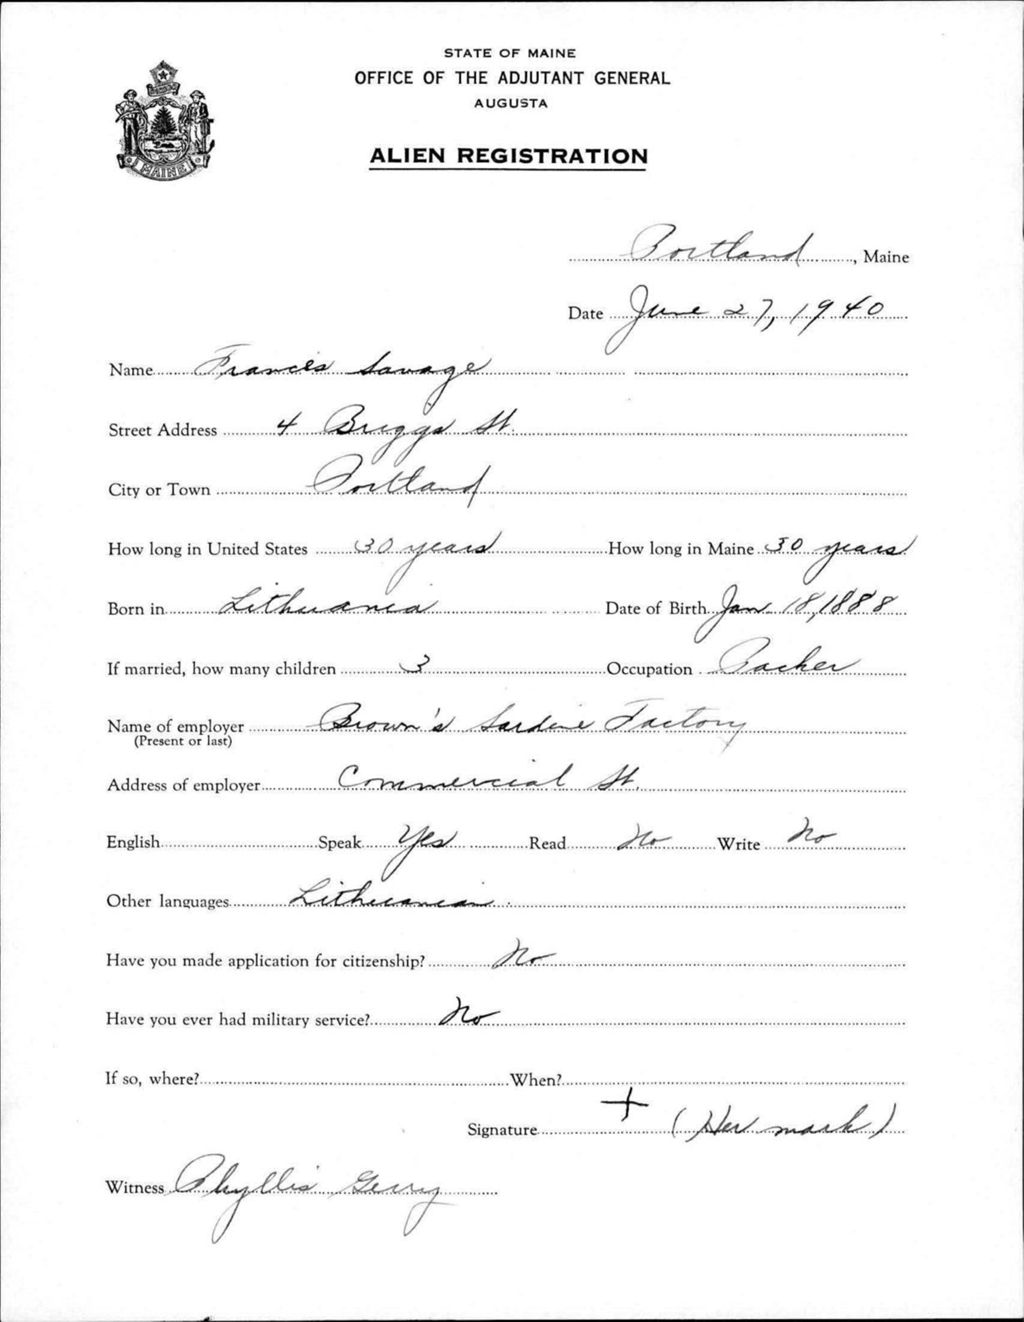 STATE OF MAINE
OFFICE OF THE ADJUTANT GENERAL
AUGUSTA
ALIEN REGISTRATION
MAINE
Portland, Maine
Date June 27, 1940
Name Frances Savage
Street Address 4 Briggs St.
City or Town Portland
How long in United States 30 years How long in Maine 30 years
Born in Lithuania Date of Birth Jan 18, 1888
If married, how many children 3 Occupation Packer
Name of employer Brown's Sardine Factory
(Present or last)
Address of employer Commercial St.
English Speak Yes Read No Write No
Other languages Lithuanian.
Have you made application for citizenship? No
Have you ever had military service? No
If so, where? When?
Signature + (Her mark)
Witness Phyllis Gerry